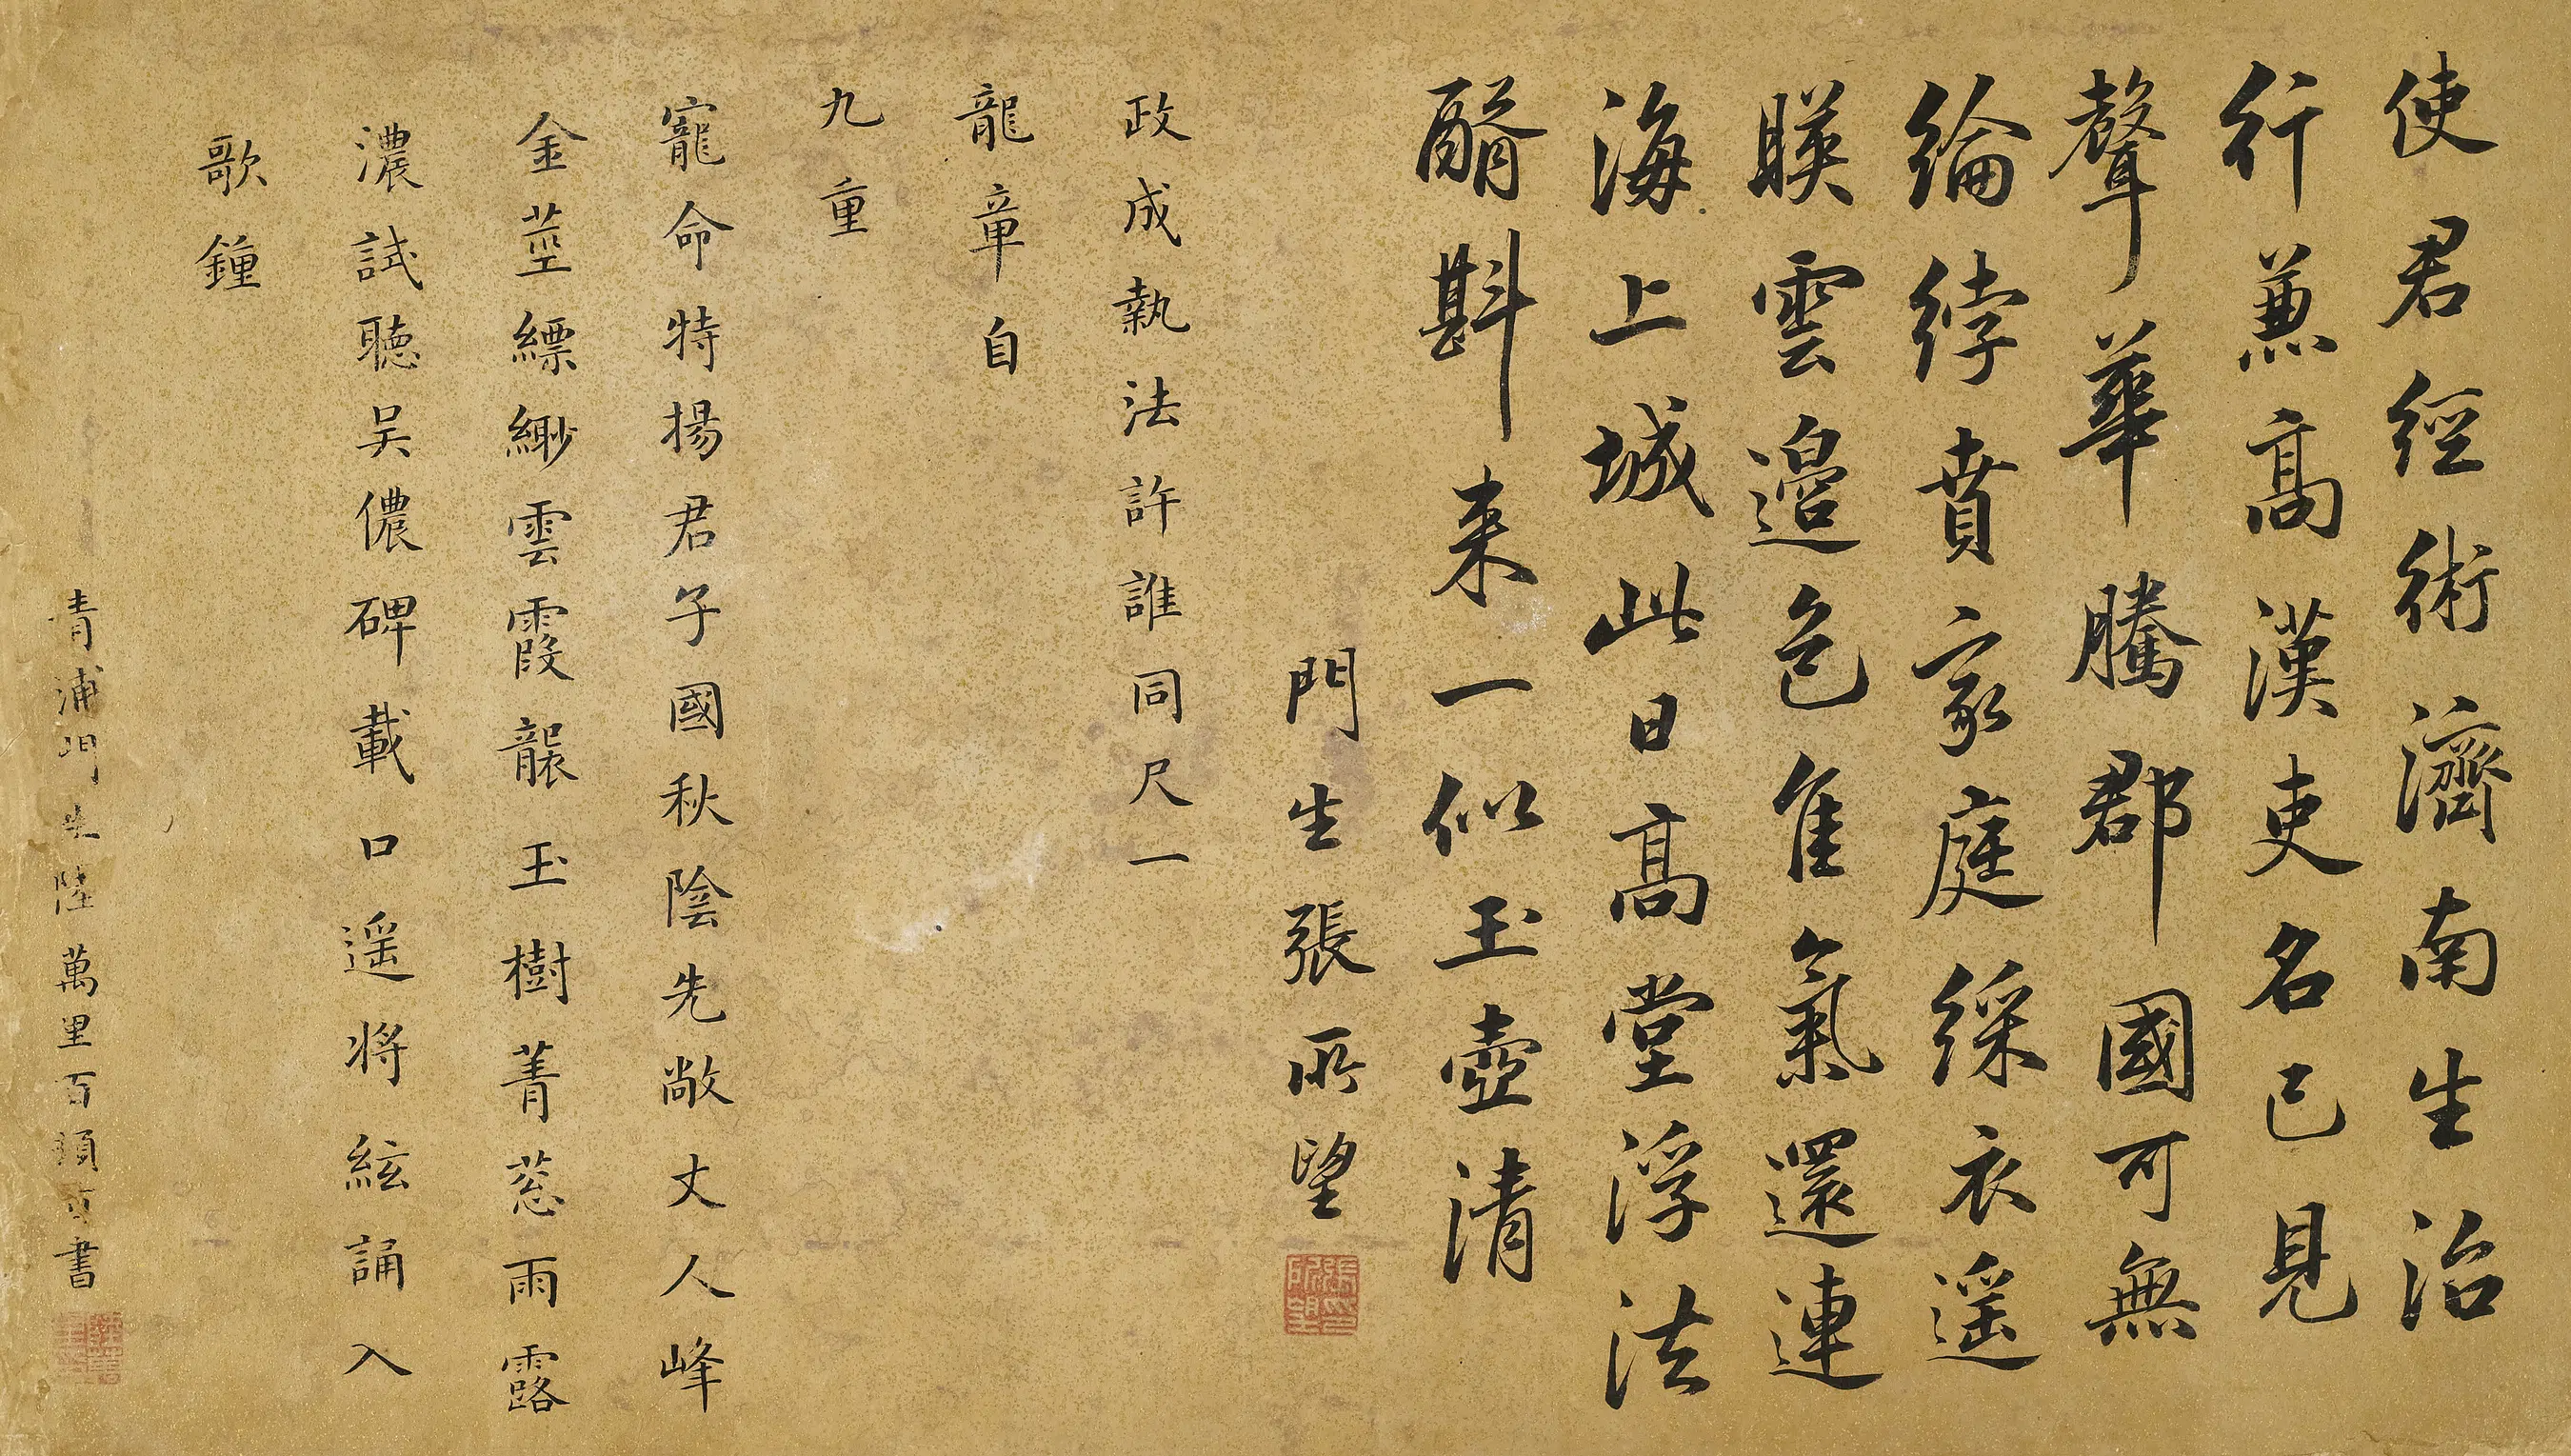 使君經術濟南生治
行兼高漢吏名已見
聲華騰郡國可無
綸綍賁家庭綵衣遥
暎雲邉色隹氣還連
海上城此日高堂浮法
醑斟来一似玉壺清
門生張所望
張所望印
政成執法許誰同尺一
龍章自
九重
寵命特揚君子國秋陰先敞丈人峰
金莖縹緲雲霞襲玉樹菁葱雨露
濃試聽吴儂碑載口遥将絃誦入
歌鍾
青浦門生陸萬里百頓首書